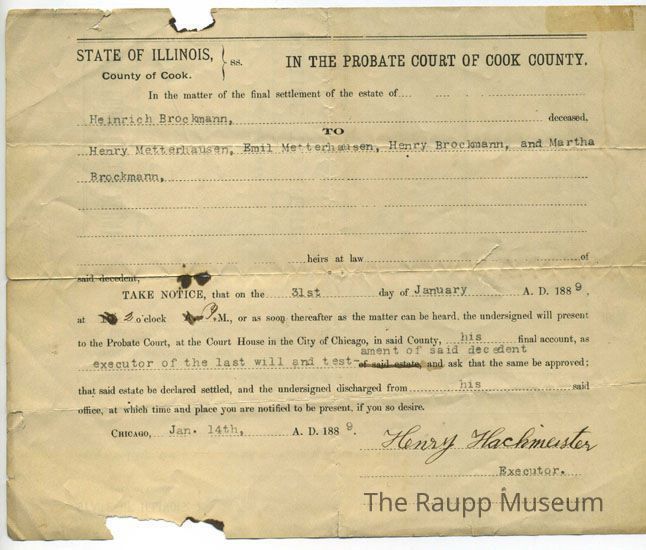 STATE OF ILLINOIS, } ss. IN THE PROBATE COURT OF COOK COUNTY.
County of Cook.
In the matter of the final settlement of the estate of
Heinrich Brockmann, deceased,
TO
Henry Metterhausen, Emil Metterhausen, Henry Brockmann, and Martha
Brockmann,
heirs at law of
said decedent,
TAKE NOTICE, that on the 31st day of January A. D. 1889,
at 2 o'clock P.M., or as soon thereafter as the matter can be heard, the undersigned will present
to the Probate Court, at the Court House in the City of Chicago, in said County, his final account, as
ament of said decedent
executor of the last will and test- of said estate, and ask that the same be approved;
that said estate be declared settled, and the undersigned discharged from his said
office, at which time and place you are notified to be present, if you so desire.
CHICAGO, Jan. 14th, A. D. 1889.
Henry Hachmeister
Executor.
The Raupp Museum